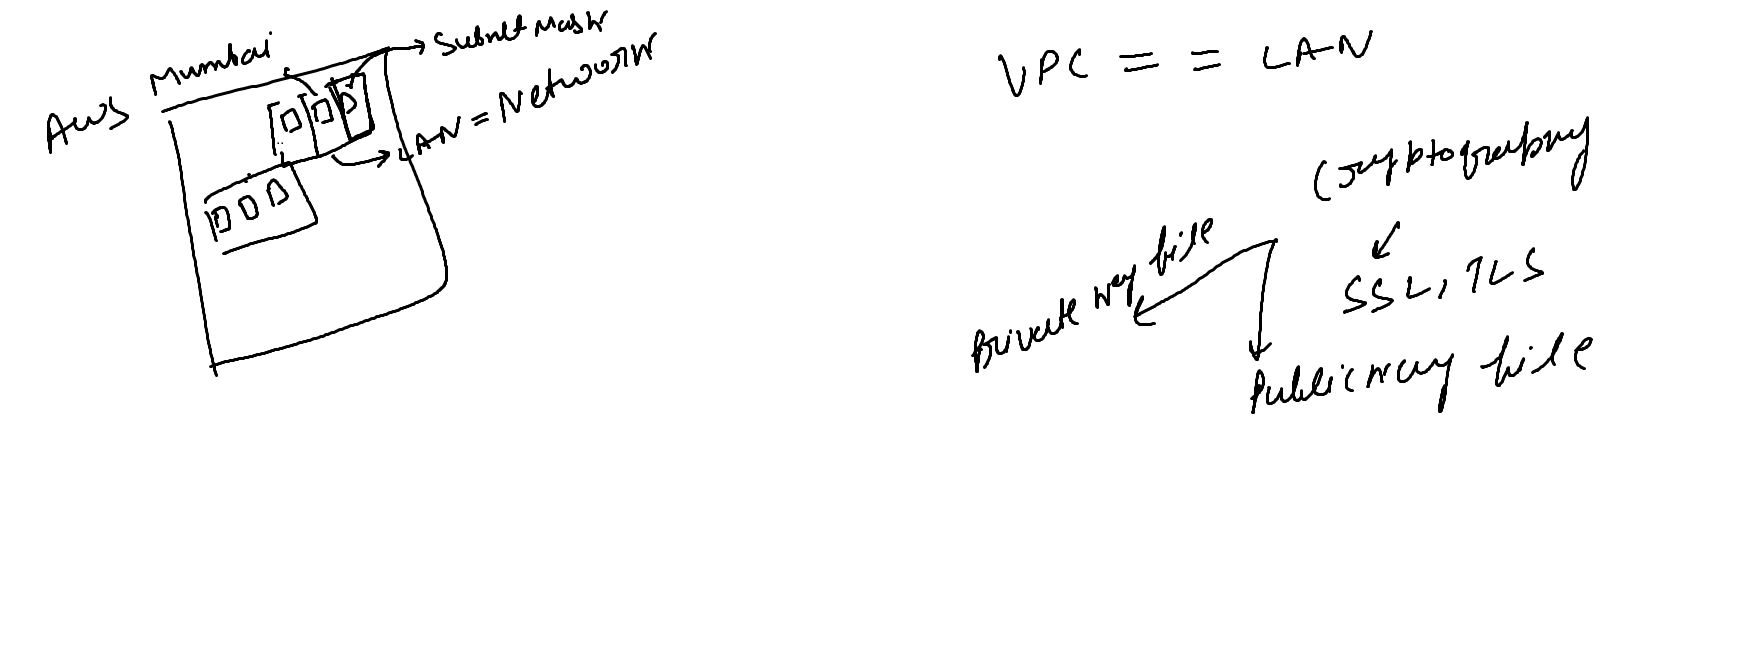 AWS
Mumbai
Subnet Mask
LAN = Network
VPC = = LAN
Cryptography
SSL, TLS
Private key file
Public key file